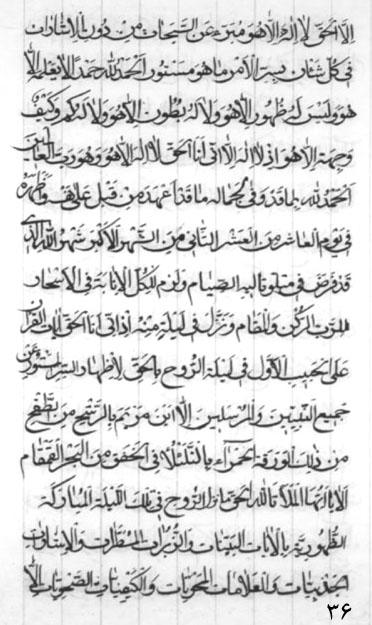 الا الحق لا اله الا هو مبرء عن السبحات من دون الاشارات
في كل شان بسر الامر ما هو مستور الحمد لله حمدا لا يعلم الا
هو وليس له ظهور الا هو ولا له بطون الا هو ولا له كم وكيف
وجهة الا هو اذ لا اله الا اني انا الحق لا اله الا هو وهو رب العالمين
الحمد لله بما قد وفى لجماله ما قد اعهده من قبل على نفسه واظهره
في يوم العاشر من العشر الثاني من الشهر الاكبر شهر الله الذي
قد فرض فيه الصيام ولزم للكل الانابة في الاسحار
لرب الركن والمقام ونزل في ليلة منه اذ اني انا الحق ايات القران
على الحبيب الاول في ليلة الروح بالحق لاظهار السر المستور عن
جميع النبيين والمرسلين الا ابن مريم بالرشح من الطفح
من ذلك الورقة الحمراء بالتلئلا في الخفق من البحر القمقام
الا يا ايها الملأ تالله الحق ما نزل الروح في تلك الليلة المباركة
الظهورية بالايات البينات والزبرات المسطرات والاشارات
الجذبيات والعلامات المحويات والكيفيات الصحويات الا
۳۶